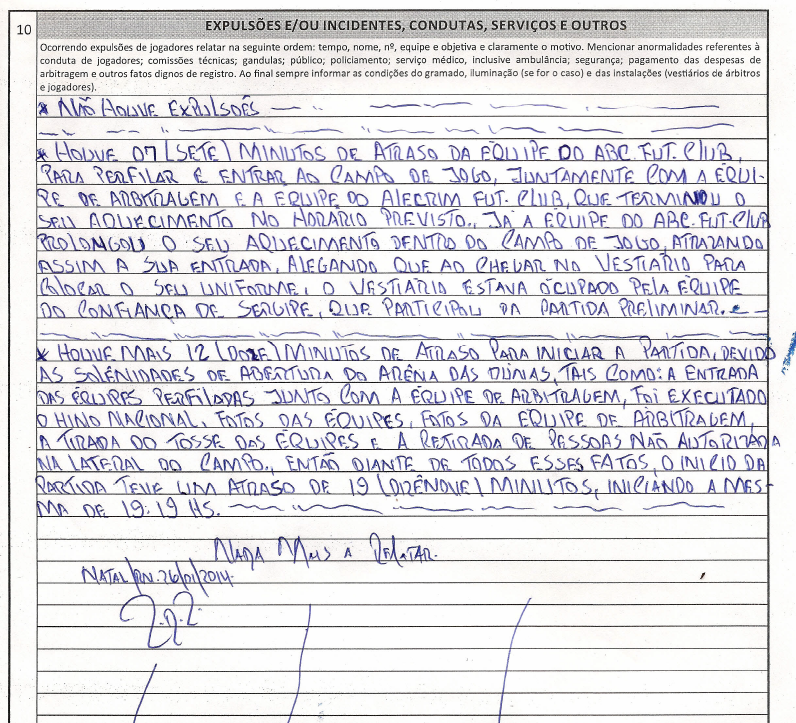 10
EXPULSÕES E/OU INCIDENTES, CONDUTAS, SERVIÇOS E OUTROS
Ocorrendo expulsões de jogadores relatar na seguinte ordem: tempo, nome, nº, equipe e objetiva e claramente o motivo. Mencionar anormalidades referentes à
conduta de jogadores; comissões técnicas; gandulas; público; policiamento; serviço médico, inclusive ambulância; segurança; pagamento das despesas de
arbitragem e outros fatos dignos de registro. Ao final sempre informar as condições do gramado, iluminação (se for o caso) e das instalações (vestiários de árbitros
e jogadores).
* NÃO HOUVE EXPULSÕES
* HOUVE 07 (SETE) MINUTOS DE ATRASO DA EQUIPE DO ABC. FUT. CLUB,
PARA PERFILAR E ENTRAR AO CAMPO DE JOGO, JUNTAMENTE COM A EQUI-
PE DE ARBITRAGEM E A EQUIPE DO ALECRIM FUT. CLUB, QUE TERMINOU O
SEU AQUECIMENTO NO HORÁRIO PREVISTO., JÁ A EQUIPE DO ABC. FUT. CLUB
PROLONGOU O SEU AQUECIMENTO DENTRO DO CAMPO DE JOGO, ATRAZANDO
ASSIM A SUA ENTRADA, ALEGANDO QUE AO CHEGAR NO VESTIÁRIO PARA
COLOCAR O SEU UNIFORME, O VESTIÁRIO ESTAVA OCUPADO PELA EQUIPE
DO CONFIANÇA DE SERGIPE, QUE PARTICIPOU DA PARTIDA PRELIMINAR.
* HOUVE MAIS 12 (DOZE) MINUTOS DE ATRASO PARA INICIAR A PARTIDA, DEVIDO
AS SOLÊNIDADES DE ABERTURA DO ARÊNA DAS DUNAS, TAIS COMO: A ENTRADA
DAS ÊQUIPES PERFILADAS JUNTO COM A ÊQUIPE DE ARBITRAGEM, FOI EXECUTADO
O HINO NACIONAL, FOTOS DAS ÊQUIPES, FOTOS DA EQUIPE DE ARBITRAGEM,
A TIRADA DO TOSSE DAS ÊQUIPES E A RETIRADA DE PESSOAS NÃO AUTORIZADA
NA LATERAL DO CAMPO., ENTÃO DIANTE DE TODOS ESSES FATOS, O INICIO DA
PARTIDA TEVE UM ATRASO DE 19 (DIZÊNOVE) MINUTOS, INICIANDO A MES-
MA DE 19:19 HS.
NADA MAIS A RELATAR.
NATAL/RN. 26/01/2014.